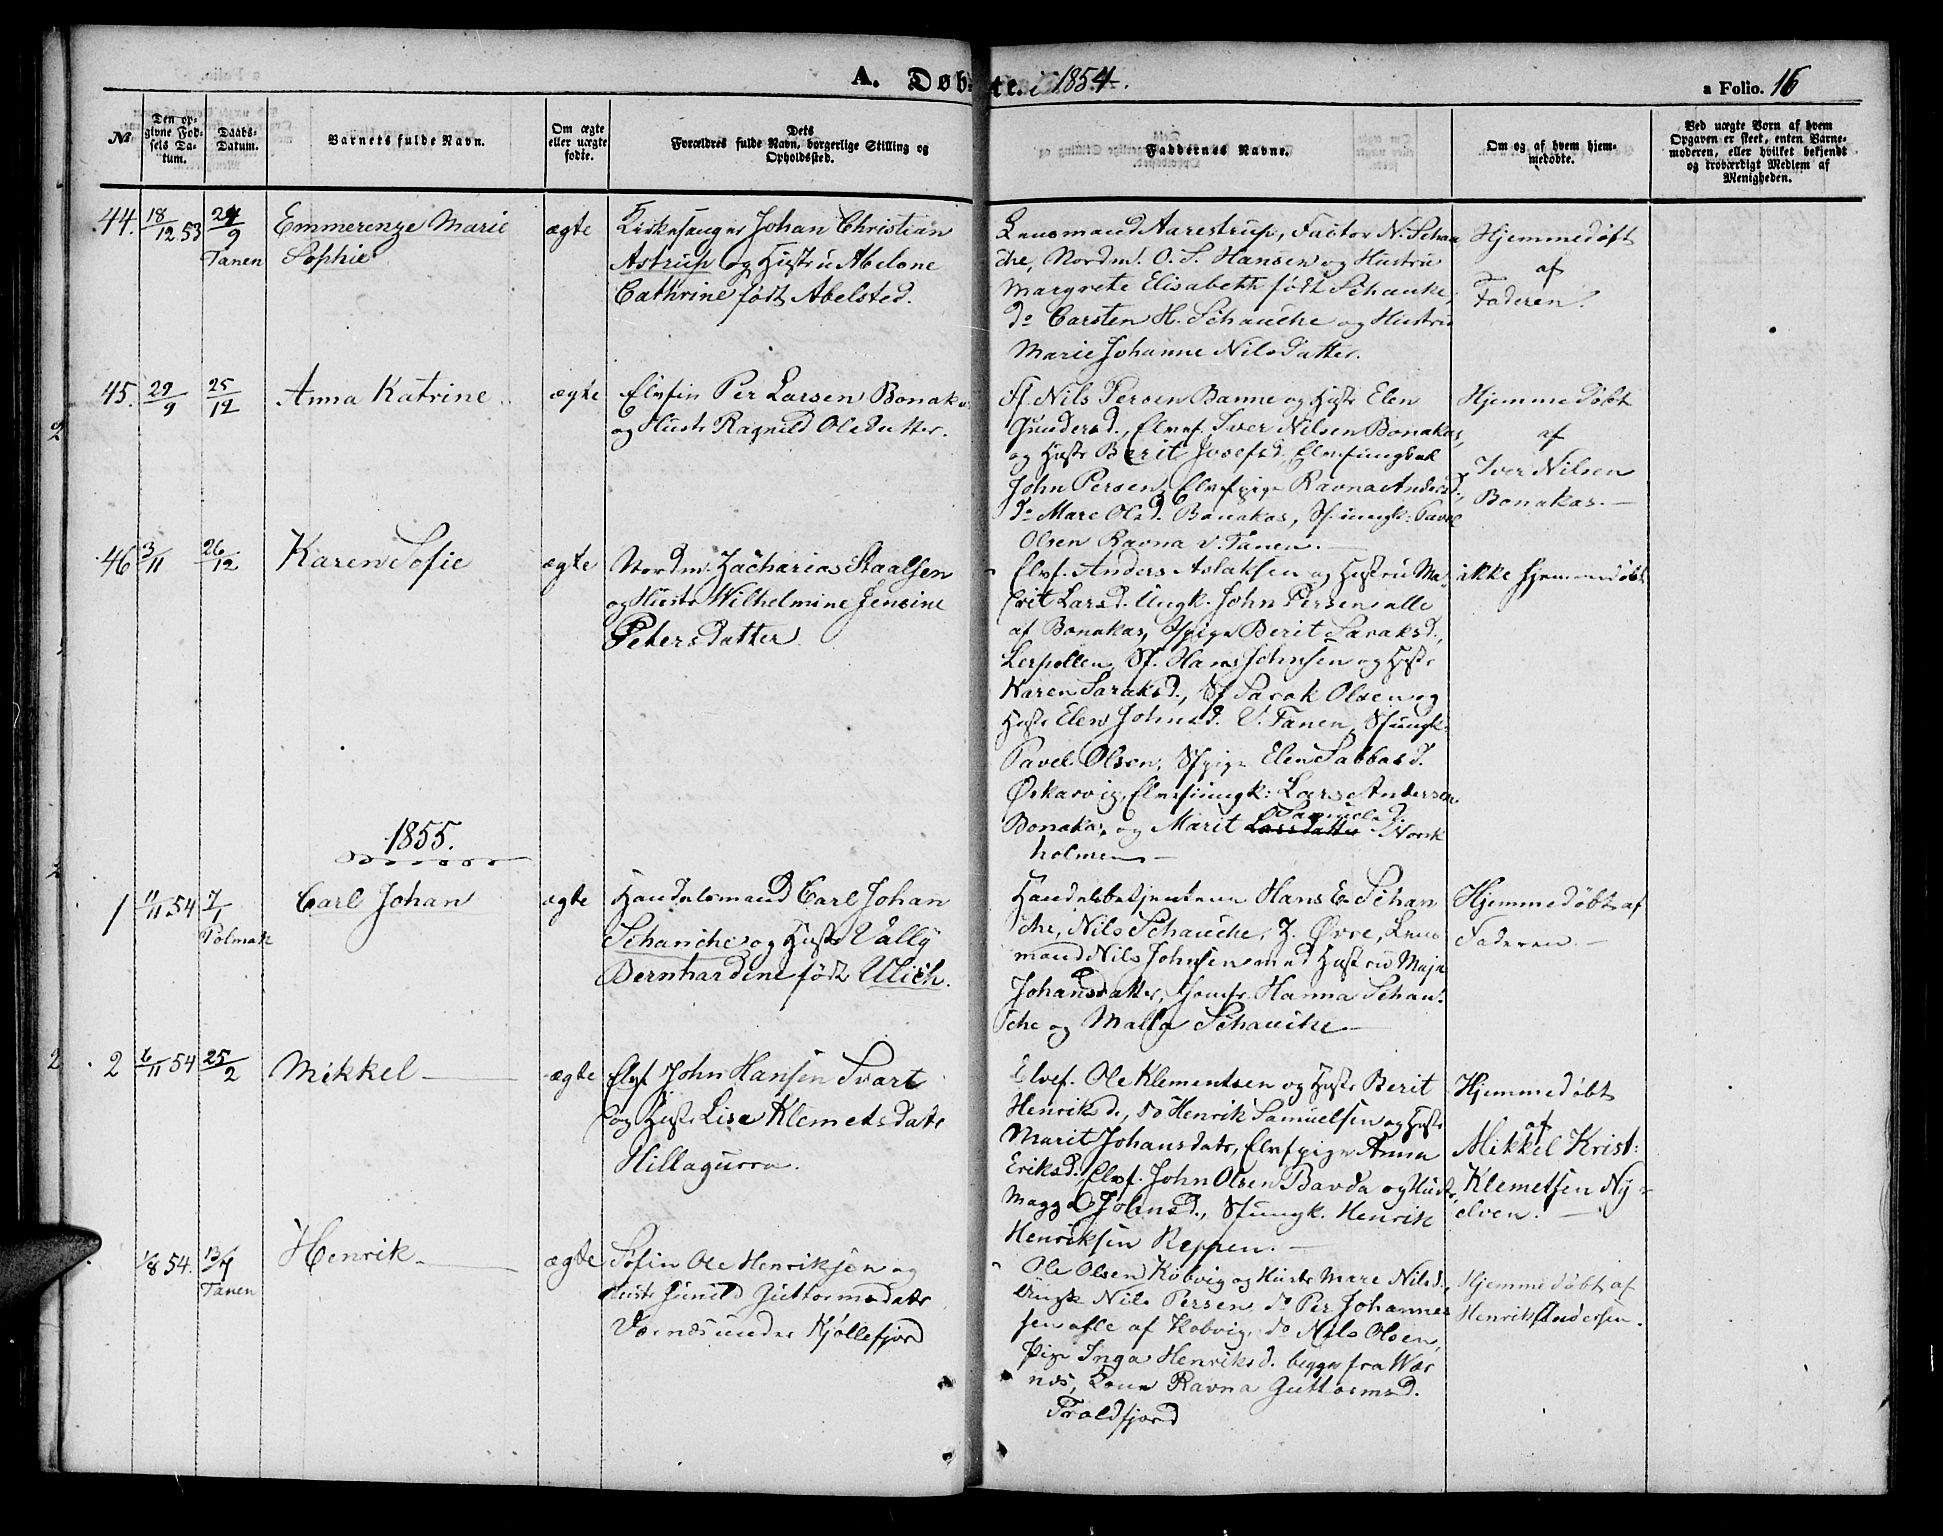 A. Døbte. i 1854.
a Folio. 16
No
Den op-
givne Fød-
sels Da-
tum.
Daabs-
Datum.
Barnets fulde Navn.
Om ægte
eller uægte
fødte.
Dets
Forældres fulde Navn, borgerlige Stilling og
Opholdssted.
Faddernes Navne.
Om og af hvem hjem-
medøbte.
Ved uægte Børn af hvem
Opgaven er skeet, enten Barne-
moderen, eller hvilket bekjendt
og troværdigt Medlem af
Menigheden.
44. 18/12 53 24/9 Tanen
Emmerenze Marie
Sophie
ægte
Kirkesanger Johan Christian
Astrup og Hustru Abelone
Cathrine født Abelsted.
Lensmand Aarestrup, Factor N. Schan
che, Nordm. O. S. Hansen og Hustru
Margrete Elisabeth født Schanke,
do Carsten H. Schanche og Hustru
Marie Johanne Nilsdatter.
Hjemmedøbt
af
Faderen.
45. 29/9 25/12
Anna Katrine
ægte
Elvfin Per Larsen Bonakas
og Hustr Ragnild Olsdatter.
Sf Nils Persen Banne og Hustr Elen
Gundersd., Elvef. Iver Nilsen Bonakas,
og Hustr Berit Josefsd, Elvfinungkarl
John Persen, Elvfpige Ravna Andersd.
do Mare Olsd. Bonakas, Sf. ungk: Pavel
Olsen Ravna v. Tanen.
Hjemmedøbt
af
Iver Nilsen
Bonakas.
46 3/11 26/12
Karen Sofie
ægte
Nordm. Zacharias Staalsen
og Hustr Wilhelmine Jensine
Petersdatter.
Elvf. Anders Aslaksen og Hustru Ma-
rit Larsd. Ungk. John Persen alle
af Bonakas, Sfpige Berit Saraksd.,
Lerpollen, Sf. Hans Johnsen og Hustr
Karen Saraksd., Sf Sarak Olsen og
Hustr Elen Johnsd. V. Tanen, Sfungk:
Pavel Olsen, Sfpige Elen Sabbasd.
Øskarvig, Elvefinungk: Lars Andersen
Bonakas og Marit Larsdatter Samuelsd. Norsk
holmen
ikke hjemmedøbt
1855.
1 11/11 54 7/1 Polmak
Carl Johan
ægte
Handelsmand Carl Johan
Schanche og Hustr Vally
Bernhardine født Ulich.
Handelsbetjentene Hans E. Schan
che, Nils Schanche, Z. Øvre, Lens
mand Nils Johnsen med Hustru Maja
Johansdatter, Jomfr. Hanna Schan-
che og Malla Schanche
Hjemmedøbt af
Faderen.
2 6/11 54 25/2
Mikkel
ægte
Elvf John Hansen Svart
og Hustr Lisa Klemetsdatr
Hillagurra.
Elvef. Ole Klementsen og Hustr Berit
Henriksd., do Henrik Samuelsen og Hustr
Marit Johansdatr, Elvfpige Anna
Eriksd, Elvf. John Olsen Bavda og Hustr,
Magga Johnsd., Sfungk. Henrik
Henriksen Reppen.
Hjemmedøbt
af
Mikkel Krist:
Klemetsen Ny-
elven.
1/8 54. 13/4 Tanen
Henrik
ægte
Søfin Ole Henriksen og
Hustr Gunild Guttormsdatr
Værnæs under Kjøllefjord
Ole Olsen Kobvig og Hustr Mare Nilsd.,
Ungk Nils Persen do Per Johannes
sen alle af Kobvig, do Nils Olsen,
Pige Inga Henriksd. begge fra Vær
næs, Kone Ravna Guttormsd.
Troldfjord
Hjemmedøbt af
Henrik Andersen.